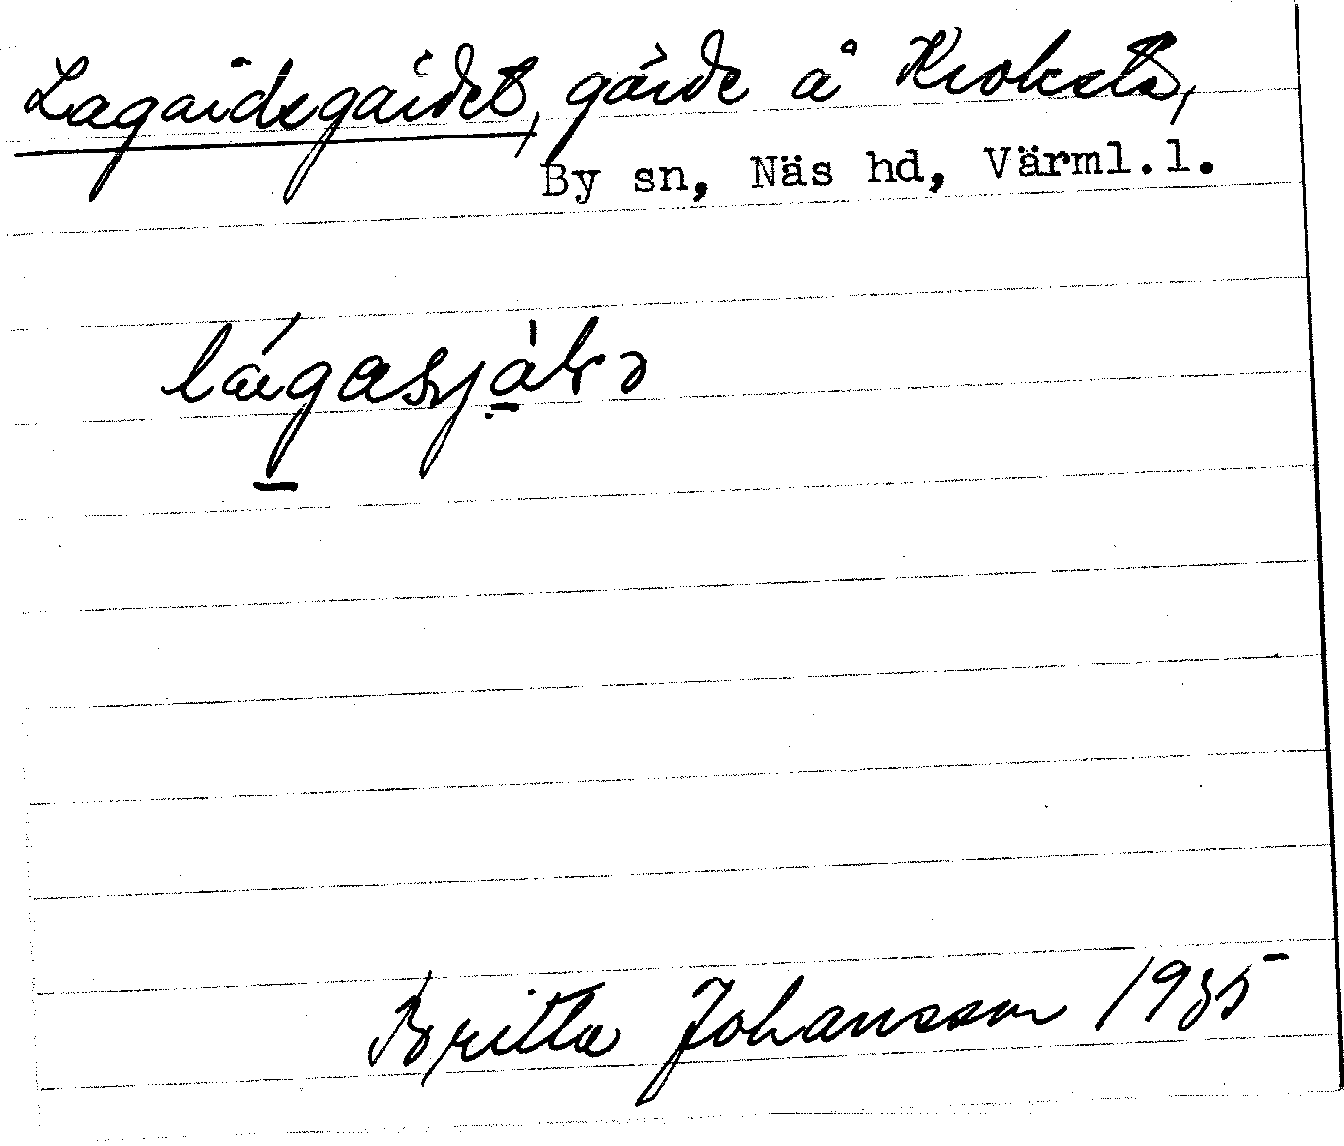 Lagårdsgärdet, gärde å Kroksta,
By sn, Näs hd, Värml.l.
Britta Johansson 1935